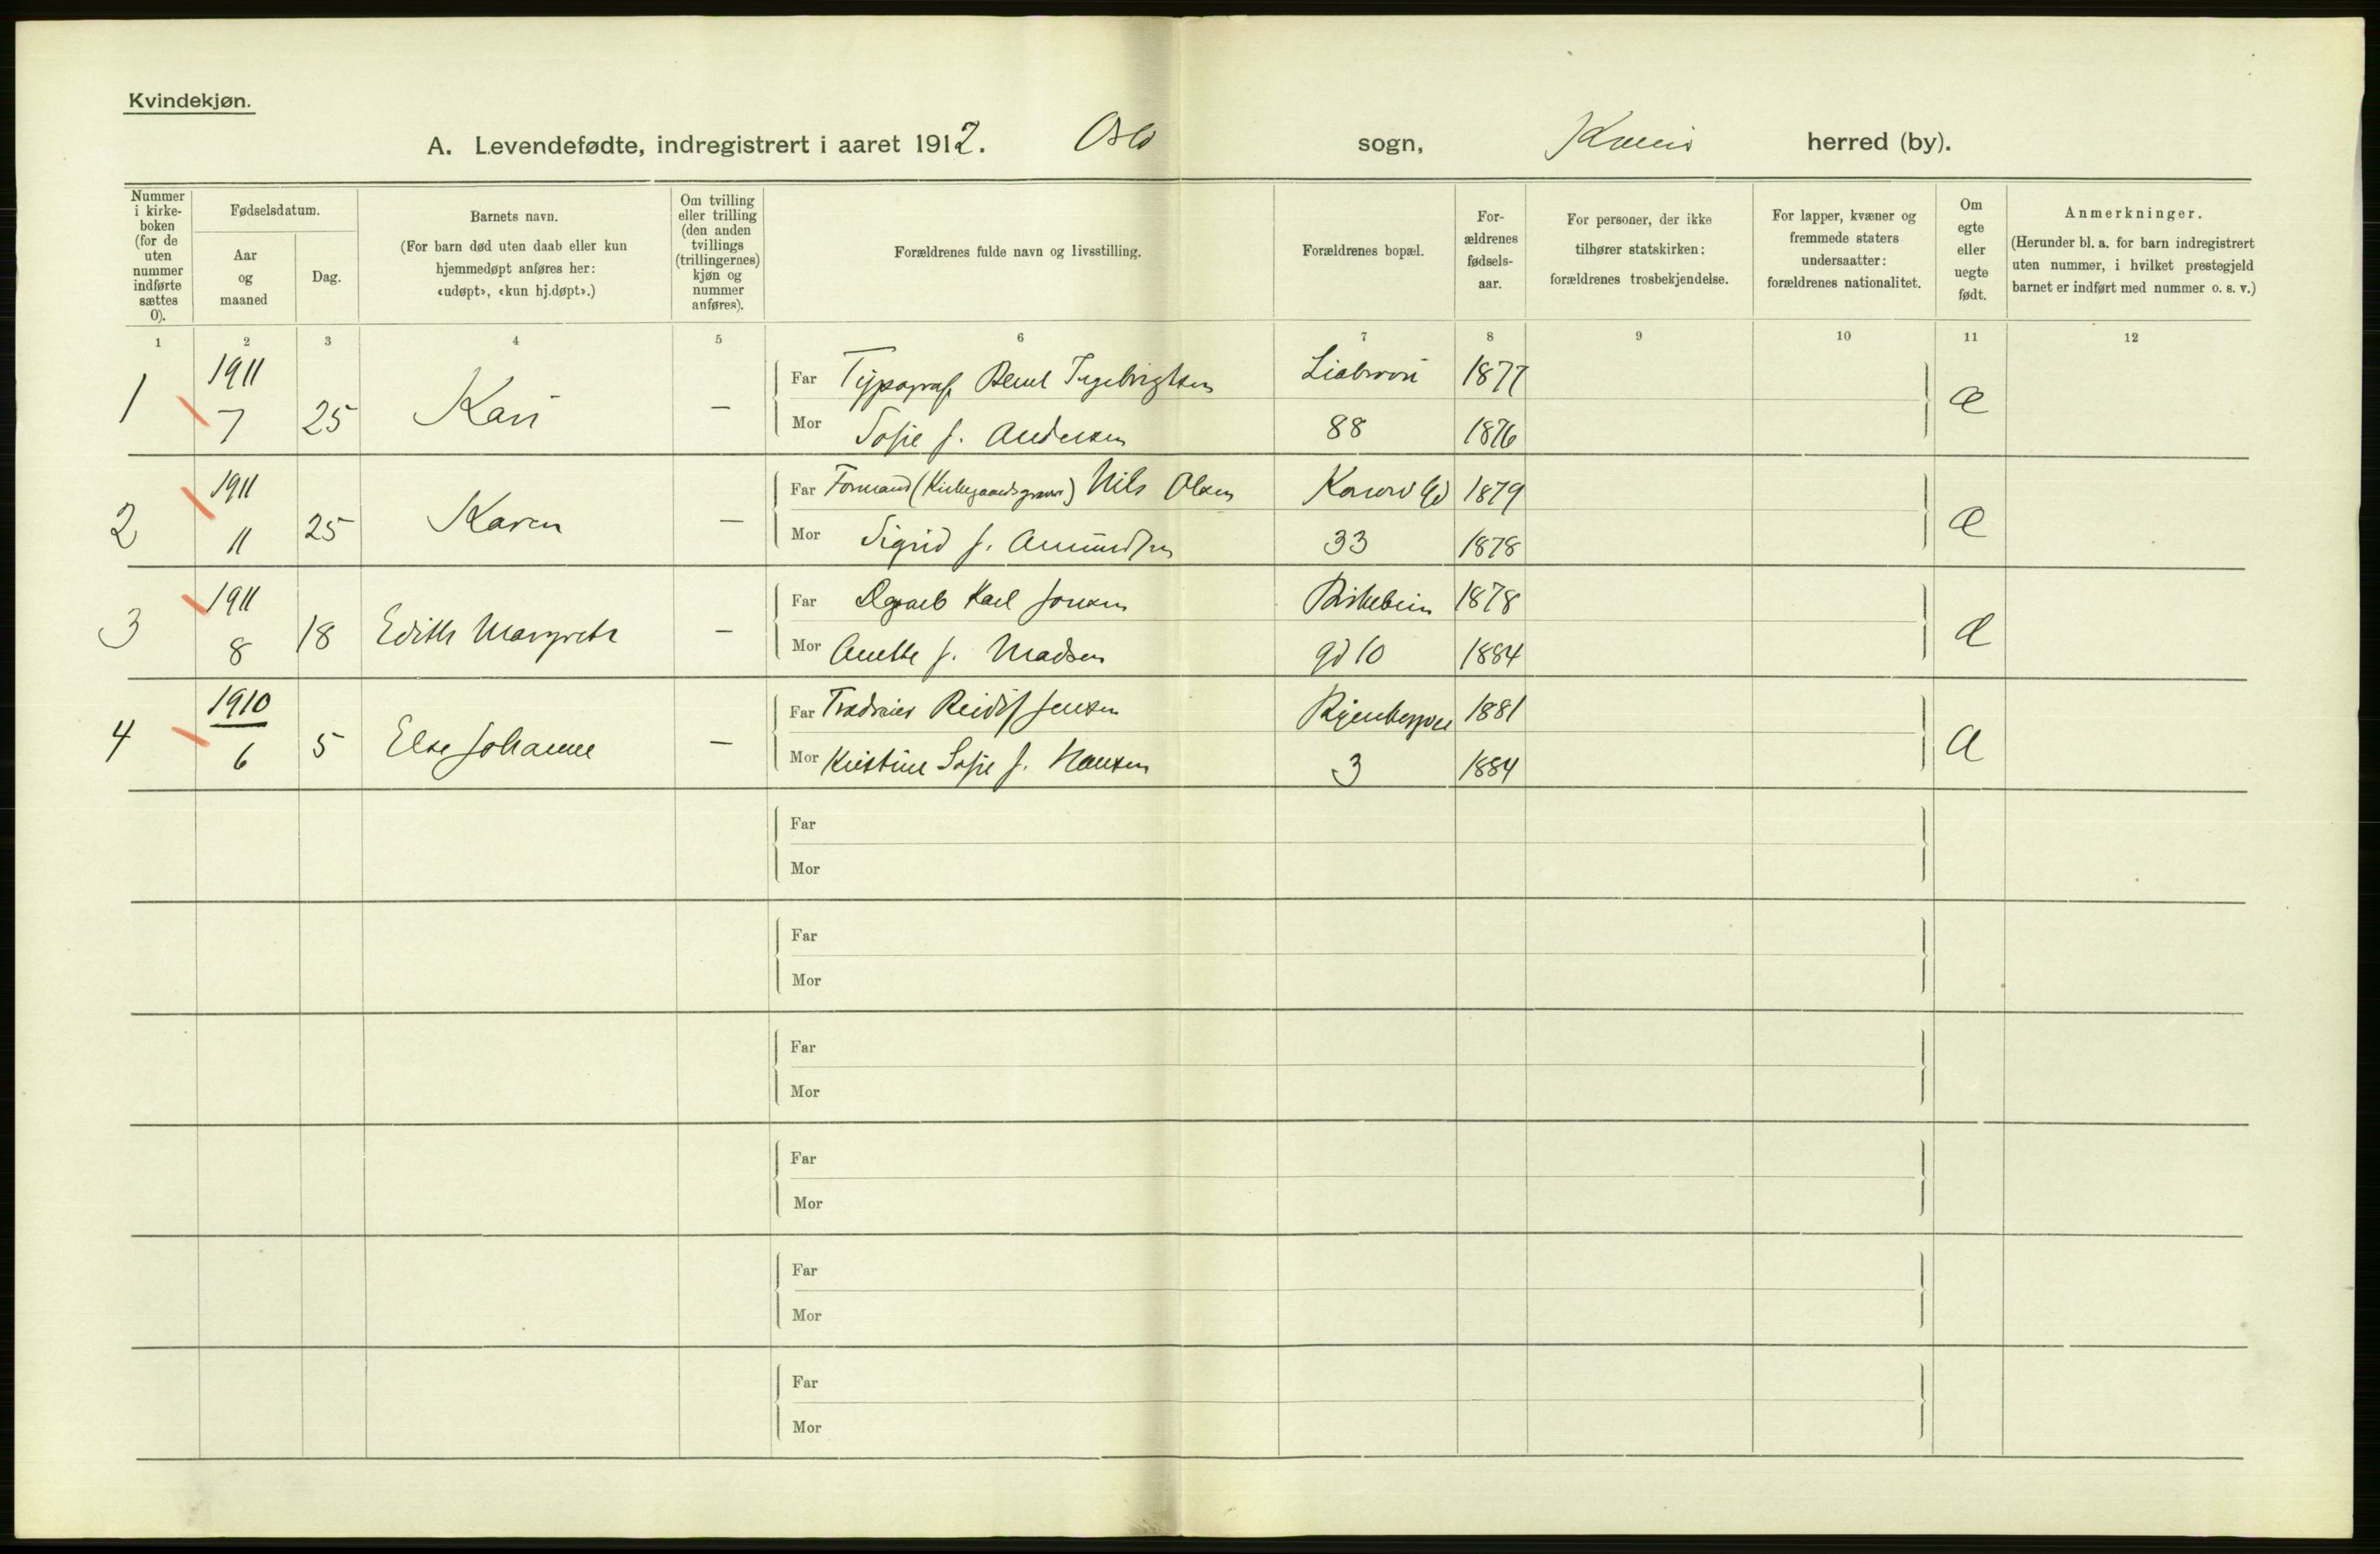 Kvindekjøn.
A. Levendefødte, indregistrert i aaret 1912. Oslo sogn, herred (by).
Nummer i kirke-boken (for de uten nummer indførte sættes 0).
Fødselsdatum.
Aar og maaned
Dag.
Barnets navn.
(For barn død uten daab eller kun hjemmedøpt anføres her: «udøpt», «kun hj.døpt».)
Om tvilling eller trilling (den anden tvillings (trillingernes) kjøn og nummer anføres).
Forældrenes fulde navn og livsstilling.
Forældrenes bopæl.
For-ældrenes fødsels-aar.
For personer, der ikke tilhører statskirken: forældrenes trosbekjendelse.
For lapper, kvæner og fremmede staters undersaatter: forældrenes nationalitet.
Om egte eller uegte født.
Anmerkninger.
(Herunder bl. a. for barn indregistrert uten nummer, i hvilket prestegjeld barnet er indført med nummer o. s. v.)
1 2 3 4 5 6 7 8 9 10 11 12
1911 Far Typograf Bernt Ingebrigtsen Liabrovei 1877
1 7 25 Kari — Æ
Mor Sofie f. Andersen 88 1876
1911 Far Formand (Kirkegaardsgraver) Nils Olsen 1879
2 11 25 Karen — Æ
Mor Sigrid f. Amundsen 33 1878
1911 Far Karl Jonsen Birkebein 1878
3 8 18 Edith Margrete — Æ
Mor Anette f. Madsen gd 10 1884
1910 Far Jensen 1881
4 6 5 Else Johanne — Æ
Mor Kristine Sofie f. Hansen 3 1884
Far
Mor
Far
Mor
Far
Mor
Far
Mor
Far
Mor
Far
Mor